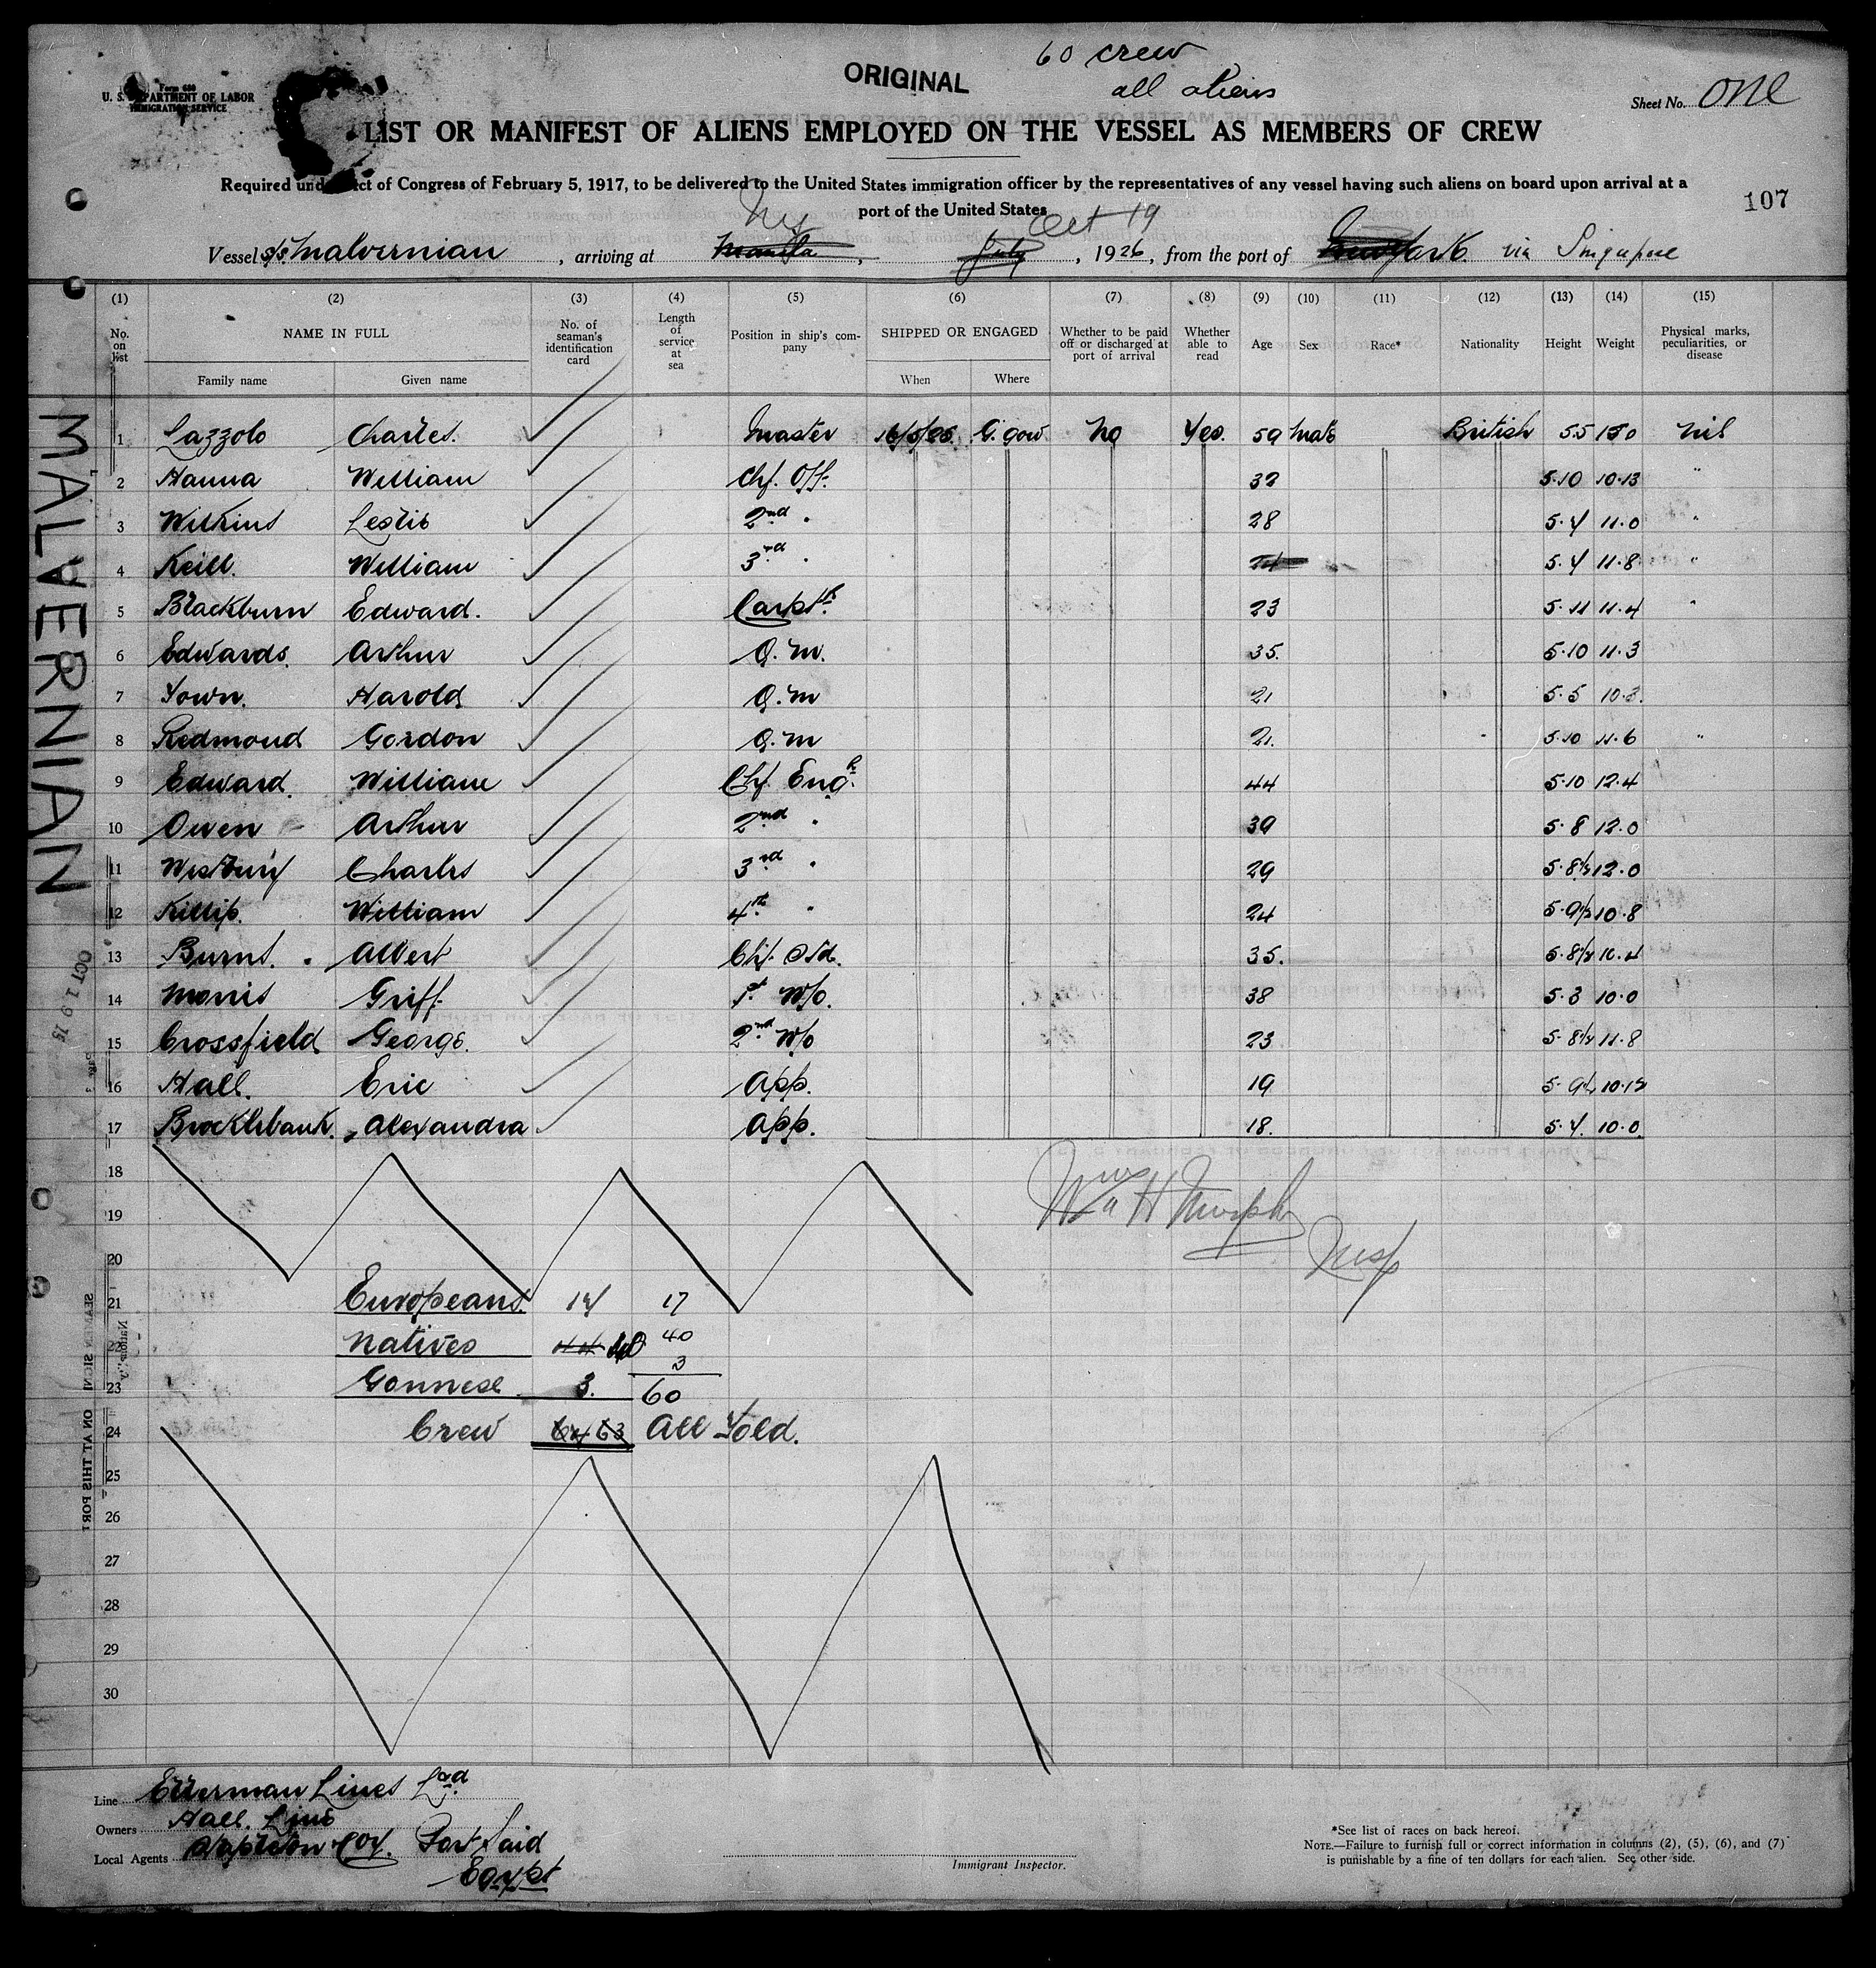 60 crew
all aliens
ORIGINAL
Form 680
U. S. DEPARTMENT OF LABOR
IMMIGRATION SERVICE
Sheet No. One
LIST OR MANIFEST OF ALIENS EMPLOYED ON THE VESSEL AS MEMBERS OF CREW
Required under Act of Congress of February 5, 1917, to be delivered to the United States immigration officer by the representatives of any vessel having such aliens on board upon arrival at a
port of the United States
107
Ny Oct 19
Vessel S/S. Malvernian, arriving at Manila, July, 1926, from the port of New York via Singapore
(1) (2) (3) (4) (5) (6) (7) (8) (9) (10) (11) (12) (13) (14) (15)
No. on list NAME IN FULL No. of seaman's identification card Length of service at sea Position in ship's company SHIPPED OR ENGAGED Whether to be paid off or discharged at port of arrival Whether able to read Age Sex Race* Nationality Height Weight Physical marks, peculiarities, or disease
Family name Given name When Where
1 Lazzolo Charles. Master G.gow No Yes. 59 Male British 5.5 150 nil
2 Hanna William Chf. Off. 32 5.10 10.13 "
3 Wilkins Leslie 2nd " 28 5.4 11.0 "
4 Keill. William 3rd " 5.4 11.8 "
5 Blackburn Edward. Carptr. 23 5.11 11.4 "
6 Edwards. Arthur Q.M. 35. 5.10 11.3
7 Town. Harold Q.M 21 5.5 10.3.
8 Redmond Gordon Q.M 21. 5.10 11.6 "
9 Edward. William Chf. Engr. 44 5.10 12.4
10 Owen Arthur 2nd " 39 5.8 12.0
11 Westbury Charles 3rd " 29 5.8½ 12.0
12 Killip. William 4th " 24 5.9½ 10.8
13 Burns. Albert Chf. Std. 35. 5.8½ 10.4
14 Morris Griff 1st W/o. 38 5.3 10.0
15 Crossfield George. 2nd W/o 23 5.8½ 11.8
16 Hall. Eric App. 19 5.9½ 10.12
17 Brocklebank. Alexandra App. 18. 5.4. 10.0
18
19
20
Wm H Murphy
Insp
21 Europeans. 17
22 Natives 40 40
23 Goannese 3. 3
60
24 Crew 63 All Told.
25
26
27
28
29
30
MALVERNIAN
OCT 19
Line Ellerman Lines Ltd
Owners Hall Line
Local Agents Stapleton Coy. Port Said
Egypt
Immigrant Inspector.
*See list of races on back hereof.
NOTE.—Failure to furnish full or correct information in columns (2), (5), (6), and (7)
is punishable by a fine of ten dollars for each alien. See other side.